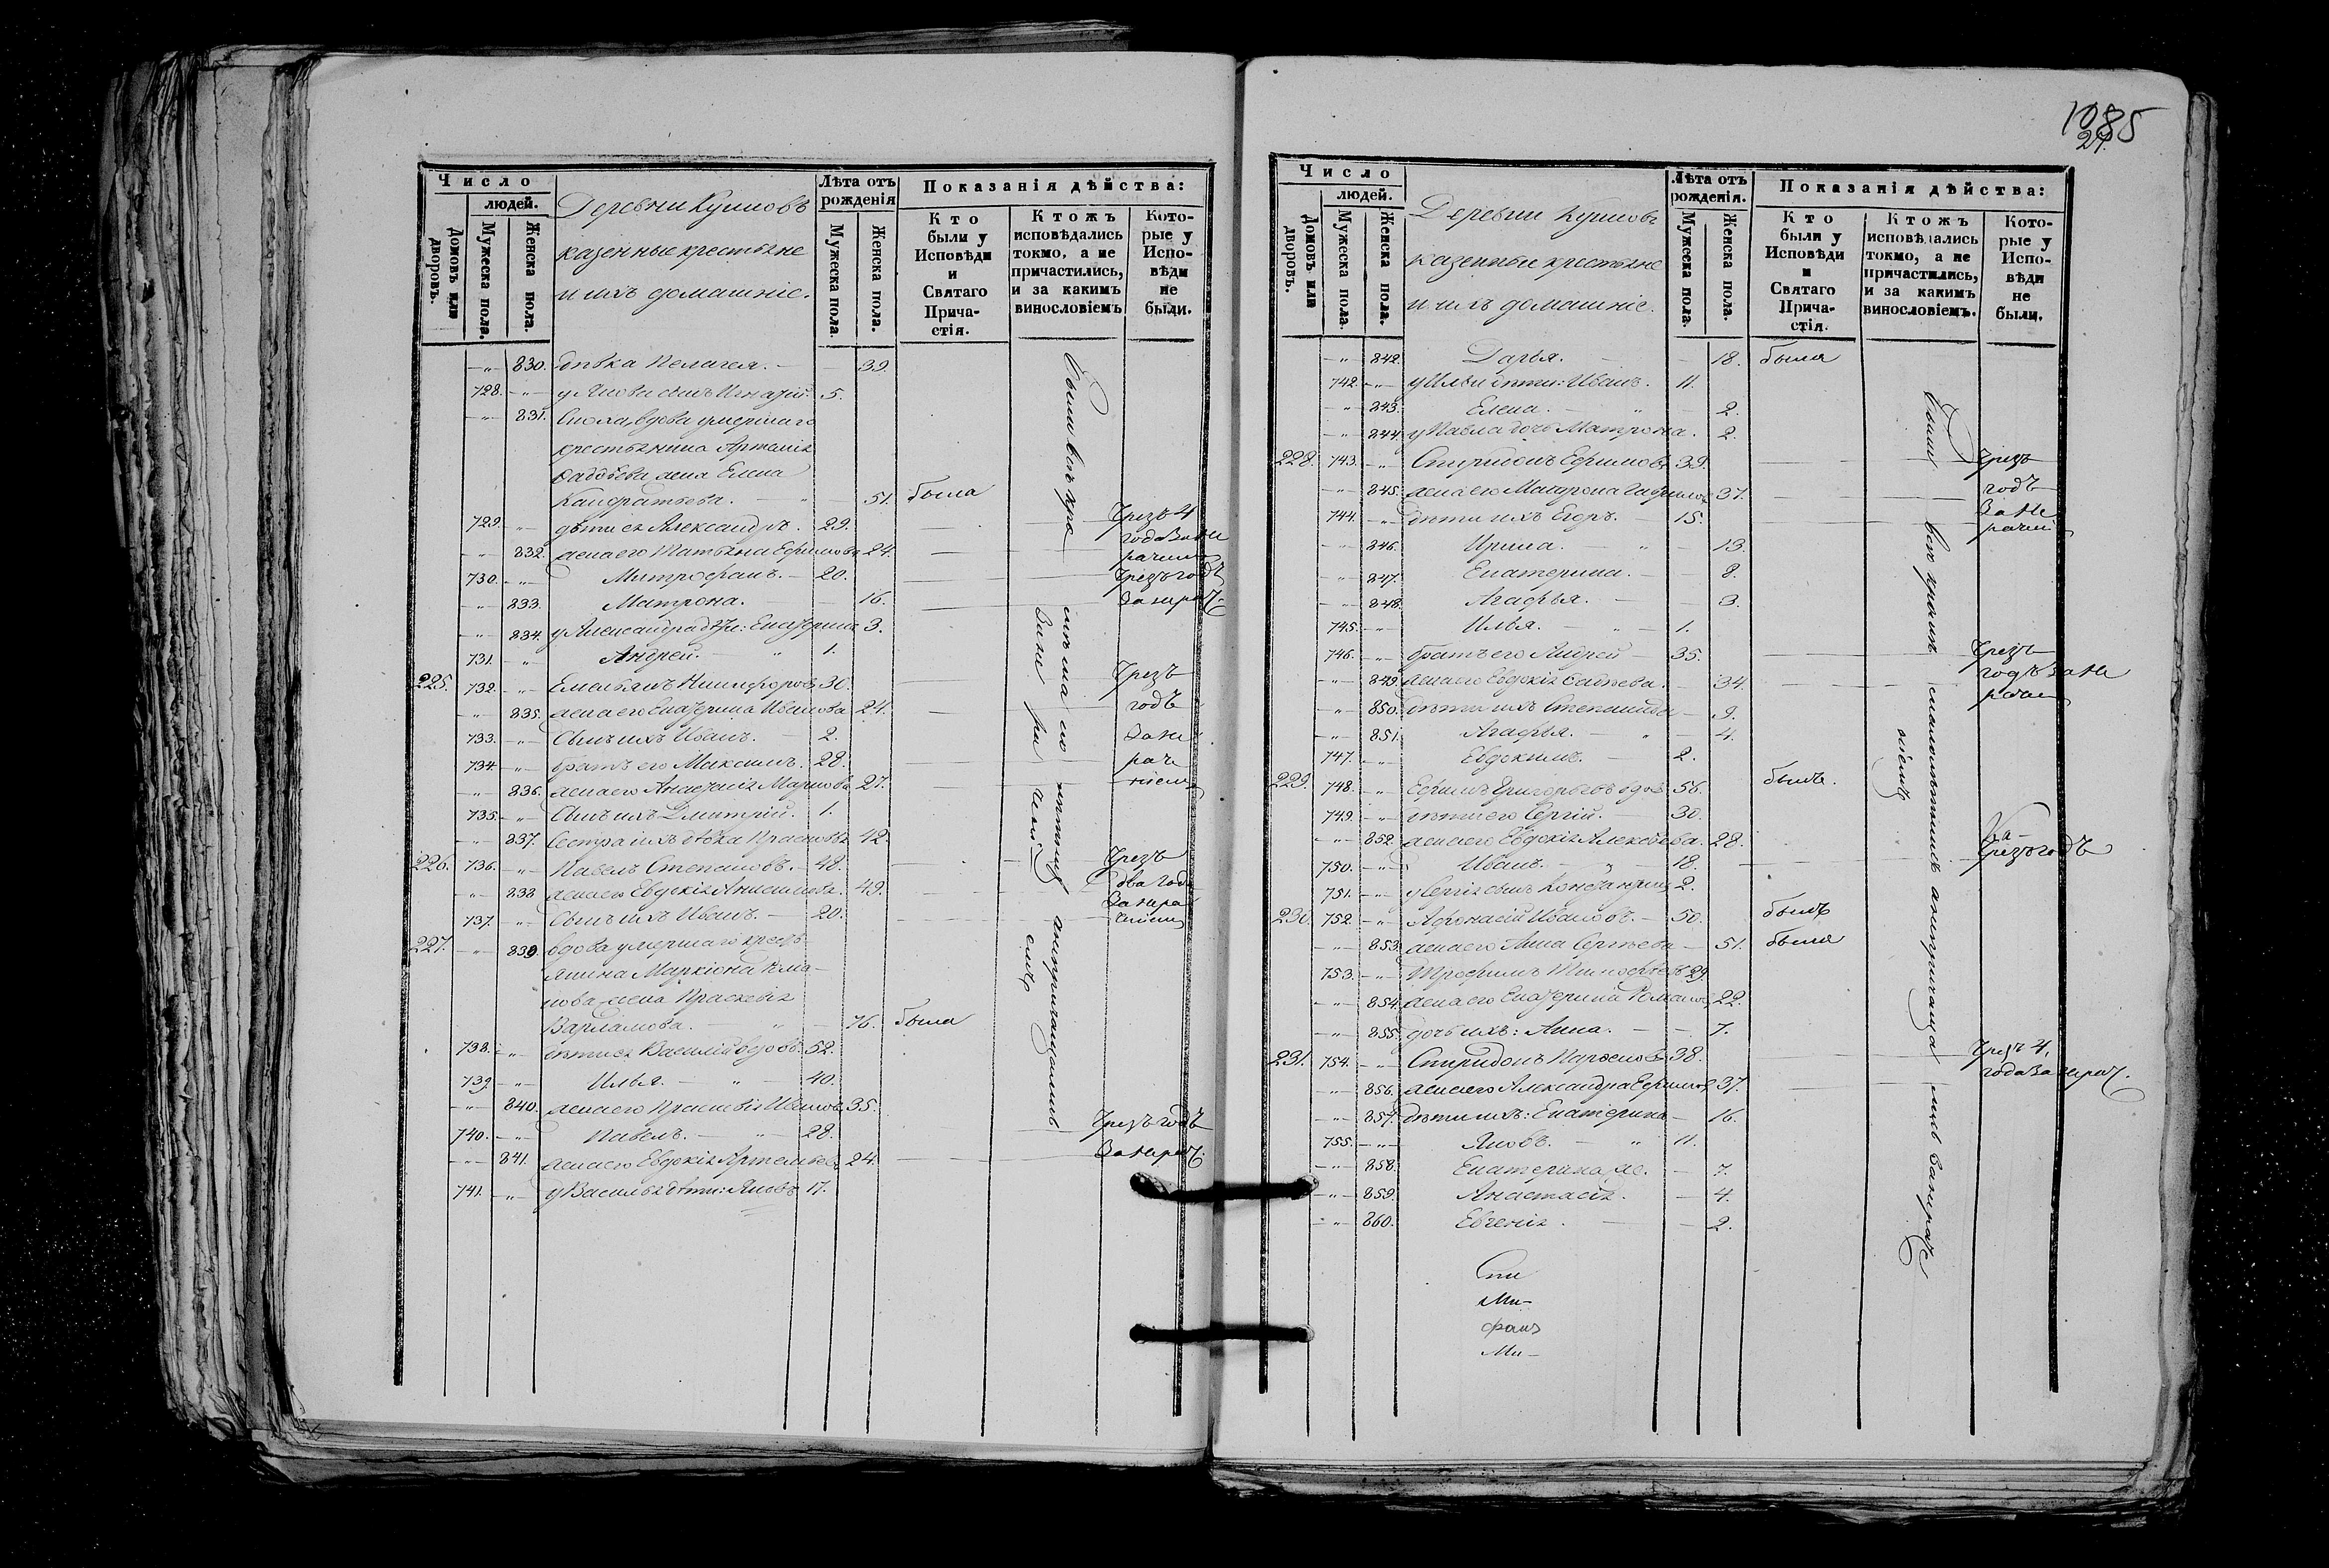 Число
людей.
Домовъ или дворовъ.
Мужеска пола.
Женска пола.
Деревни Кушовъ
казенные крестьяне
и ихъ домашніе.
Лѣта отъ рожденія
Мужеска пола.
Женска пола.
Показанія дѣйства:
Кто были у Исповѣди и Святаго Причастія.
Ктожъ исповѣдались токмо, а не причастились, и за какимъ винословіемъ
Которые у Исповѣди не были.
— „ — 830. дѣвка Пелагея. — 39.
728. — „ — у Якова сынъ Игнатій. 5.
— „ — 831. вдова умершаго
крестьянина Артемія
жена Елена
Кандратьева. — „ — 51. была
729. — „ — дѣти ея Александръ. 29. Чрезъ 4
года за не
— „ — 832. жена его Татьяна Ефимова 24.
730. — „ — Митрофанъ. — 20. Чрезъ годъ
— „ — 833. Матрона. — 16. за нерач.
— „ — 834. у Александра дѣти: Екатерина 3.
731. — „ — Андрей. — „ 1.
225. 732. — „ — Емельянъ Никифоровъ 30. Чрезъ
— „ — 835. жена его Екатерина Иванова 24. годъ
733. — „ — Сынъ ихъ Иванъ. — 2. За не
734. — „ — братъ его Максимъ. 28. рач
— „ — 836. жена его Анастасія Маркова 27. ніемъ
735. — „ — Сынъ ихъ Дмитрій. 1.
— „ — 837. Сестра ихъ дѣвка 42.
226. 736. — „ — Павелъ Степановъ. — 48. Чрезъ
— „ — 838. жена его Евдокія Анисимова. 49. два года
737. — „ — Сынъ ихъ Иванъ. — 20. За нера
ченіемъ
227. — „ — 839. вдова умершаго кресть-
янина Маркіона
жена Праскевія
Варламова. — „ — 76. была
738. — „ — дѣти ея Василій вдовъ. 52.
739. — „ — Илья. — „ — 40.
— „ — 840. жена его Праскевія Иванова 35.
740. — „ — Павелъ. — „ — 28. Чрезъ годъ
— „ — 841. жена его Евдокія Артемьева 24. За нерач.
741. — „ — у Василья дѣти: Яковъ 17.
1085
27.
Число
людей.
Домовъ или дворовъ.
Мужеска пола.
Женска пола.
Деревни Кушовъ
казенные крестьяне
и ихъ домашніе.
Лѣта отъ рожденія.
Мужеска пола.
Женска пола.
Показанія дѣйства:
Кто были у Исповѣди и Святаго Причастія.
Ктожъ исповѣдались токмо, а не причастились, и за какимъ винословіемъ.
Которые у Исповѣди не были.
— „ — 842. Дарья. — 18. была
742. — „ — у Ильи дѣти: Иванъ. 11.
— „ — 843. Елена. — „ — 2.
— „ — 844. у Павла дочь Матрона. 2.
228. 743. — „ — Спиридонъ Ефимовъ 39. Чрезъ
— „ — 845. жена его Матрона 37. годъ
744. — „ — дѣти ихъ Егоръ. — 15. За не
— „ — 846. Ирина. — „ — 13.
— „ — 847. Екатерина. — 8.
— „ — 848. Агафья. — 3.
745. — „ — Илья. — „ — 1.
746. — „ — братъ его Андрей — 35. Чрезъ
— „ — 849. жена его Евдокія Савѣева. — 34. годъ за не
— „ — 850. дѣти ихъ Степанида — 9.
— „ — 851. Агафья. — „ — 4.
747. — „ — Евдокимъ. — 2.
229. 748. — „ — Ефимъ Григорьевъ вдов 56. былъ.
749. — „ — дѣти его Сергій. — 30.
— „ — 852. жена его Евдокія Алексѣева. 28.
750. — „ — Иванъ. — „ 18. Чрезъ годъ
751. — „ — у Сергія сынъ Константинъ 2.
230. 752. — „ — Афонасій Ивановъ. — 50. былъ
— „ — 853. жена его Анна Сергѣева — 51. была
753. — „ — Трофимъ Тимофѣевъ 29.
— „ — 854. жена его Екатерина Романова 22.
— „ — 855. дочь ихъ: Анна. — 7.
231. 754. — „ — Спиридонъ Парѳеновъ 38. Чрезъ 4.
— „ — 856. жена его Александра Ефимова 37. года за нерач.
— „ — 857. дѣти ихъ: Екатерина — 16.
755. — „ — Яковъ. — „ 11.
— „ — 858. Екатерина же. — 7.
— „ — 859. Анастасія. — 4.
— „ — 860. Евгенія. — 2.